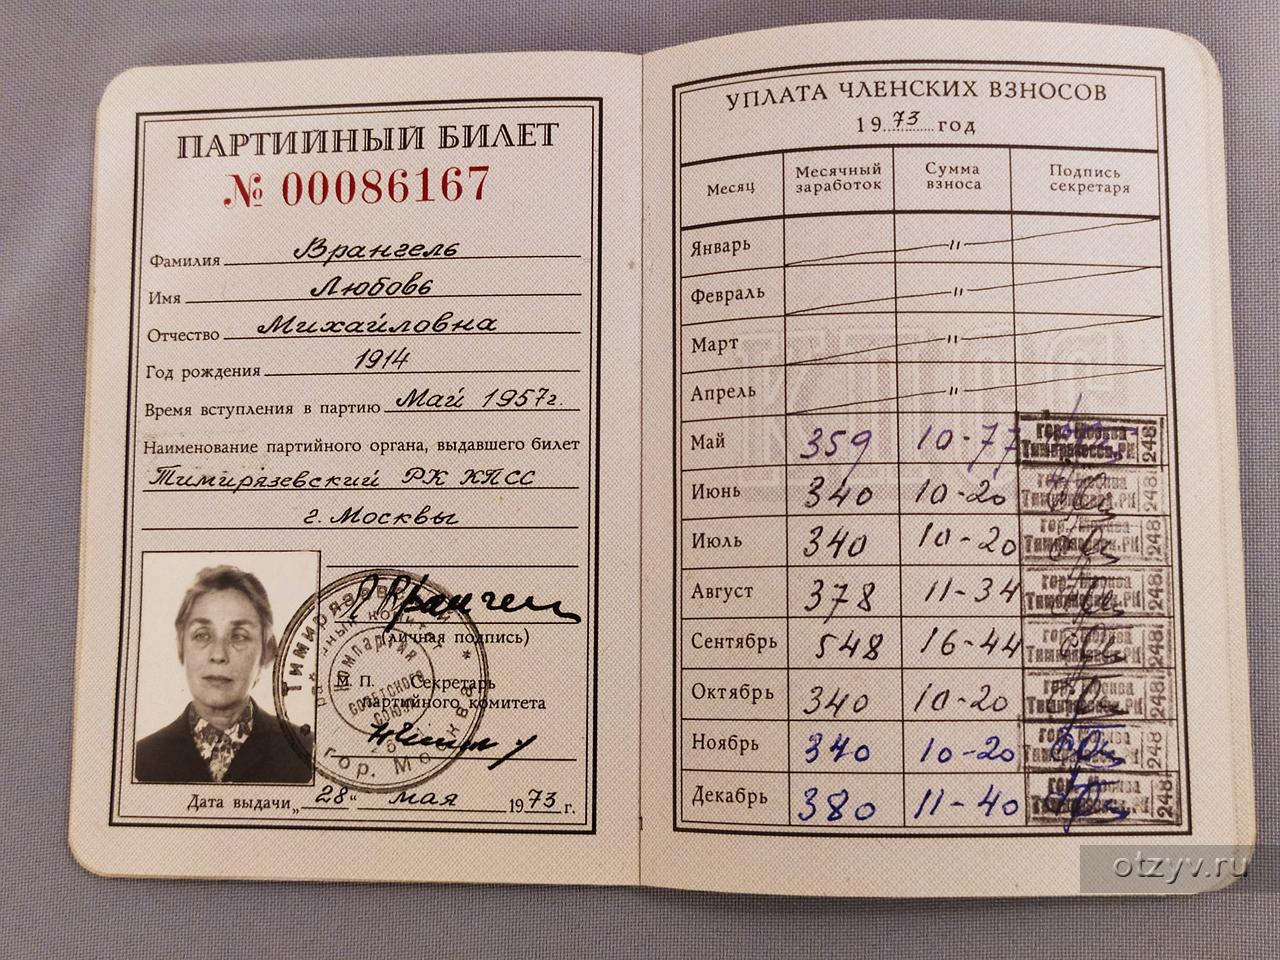 ПАРТИЙНЫЙ БИЛЕТ
№ 00086167
Фамилия Врангель
Имя Любовь
Отчество Михайловна
Год рождения 1914
Время вступления в партию Май 1957г.
Наименование партийного органа, выдавшего билет
Тимирязевский РК КПСС
г. Москвы
Врангель
(личная подпись)
М. П. Секретарь
партийного комитета
Дата выдачи „28“ мая 1973 г.
Тимирязевский
районный комитет
Компартия
Советского
Союза
гор. Москва
УПЛАТА ЧЛЕНСКИХ ВЗНОСОВ
1973 год
Месяц Месячный заработок Сумма взноса Подпись секретаря
Январь "
Февраль "
Март "
Апрель "
Май 359 10-77 гор. Москва Тимирязевск.РК 248
Июнь 340 10-20 гор. Москва Тимирязевск.РК 248
Июль 340 10-20 гор. Москва Тимирязевск.РК 248
Август 378 11-34 гор. Москва Тимирязевск.РК 248
Сентябрь 548 16-44 гор. Москва Тимирязевск.РК 248
Октябрь 340 10-20 гор. Москва Тимирязевск.РК 248
Ноябрь 340 10-20 гор. Москва Тимирязевск.РК 248
Декабрь 380 11-40 гор. Москва Тимирязевск.РК 248
otzyv.ru